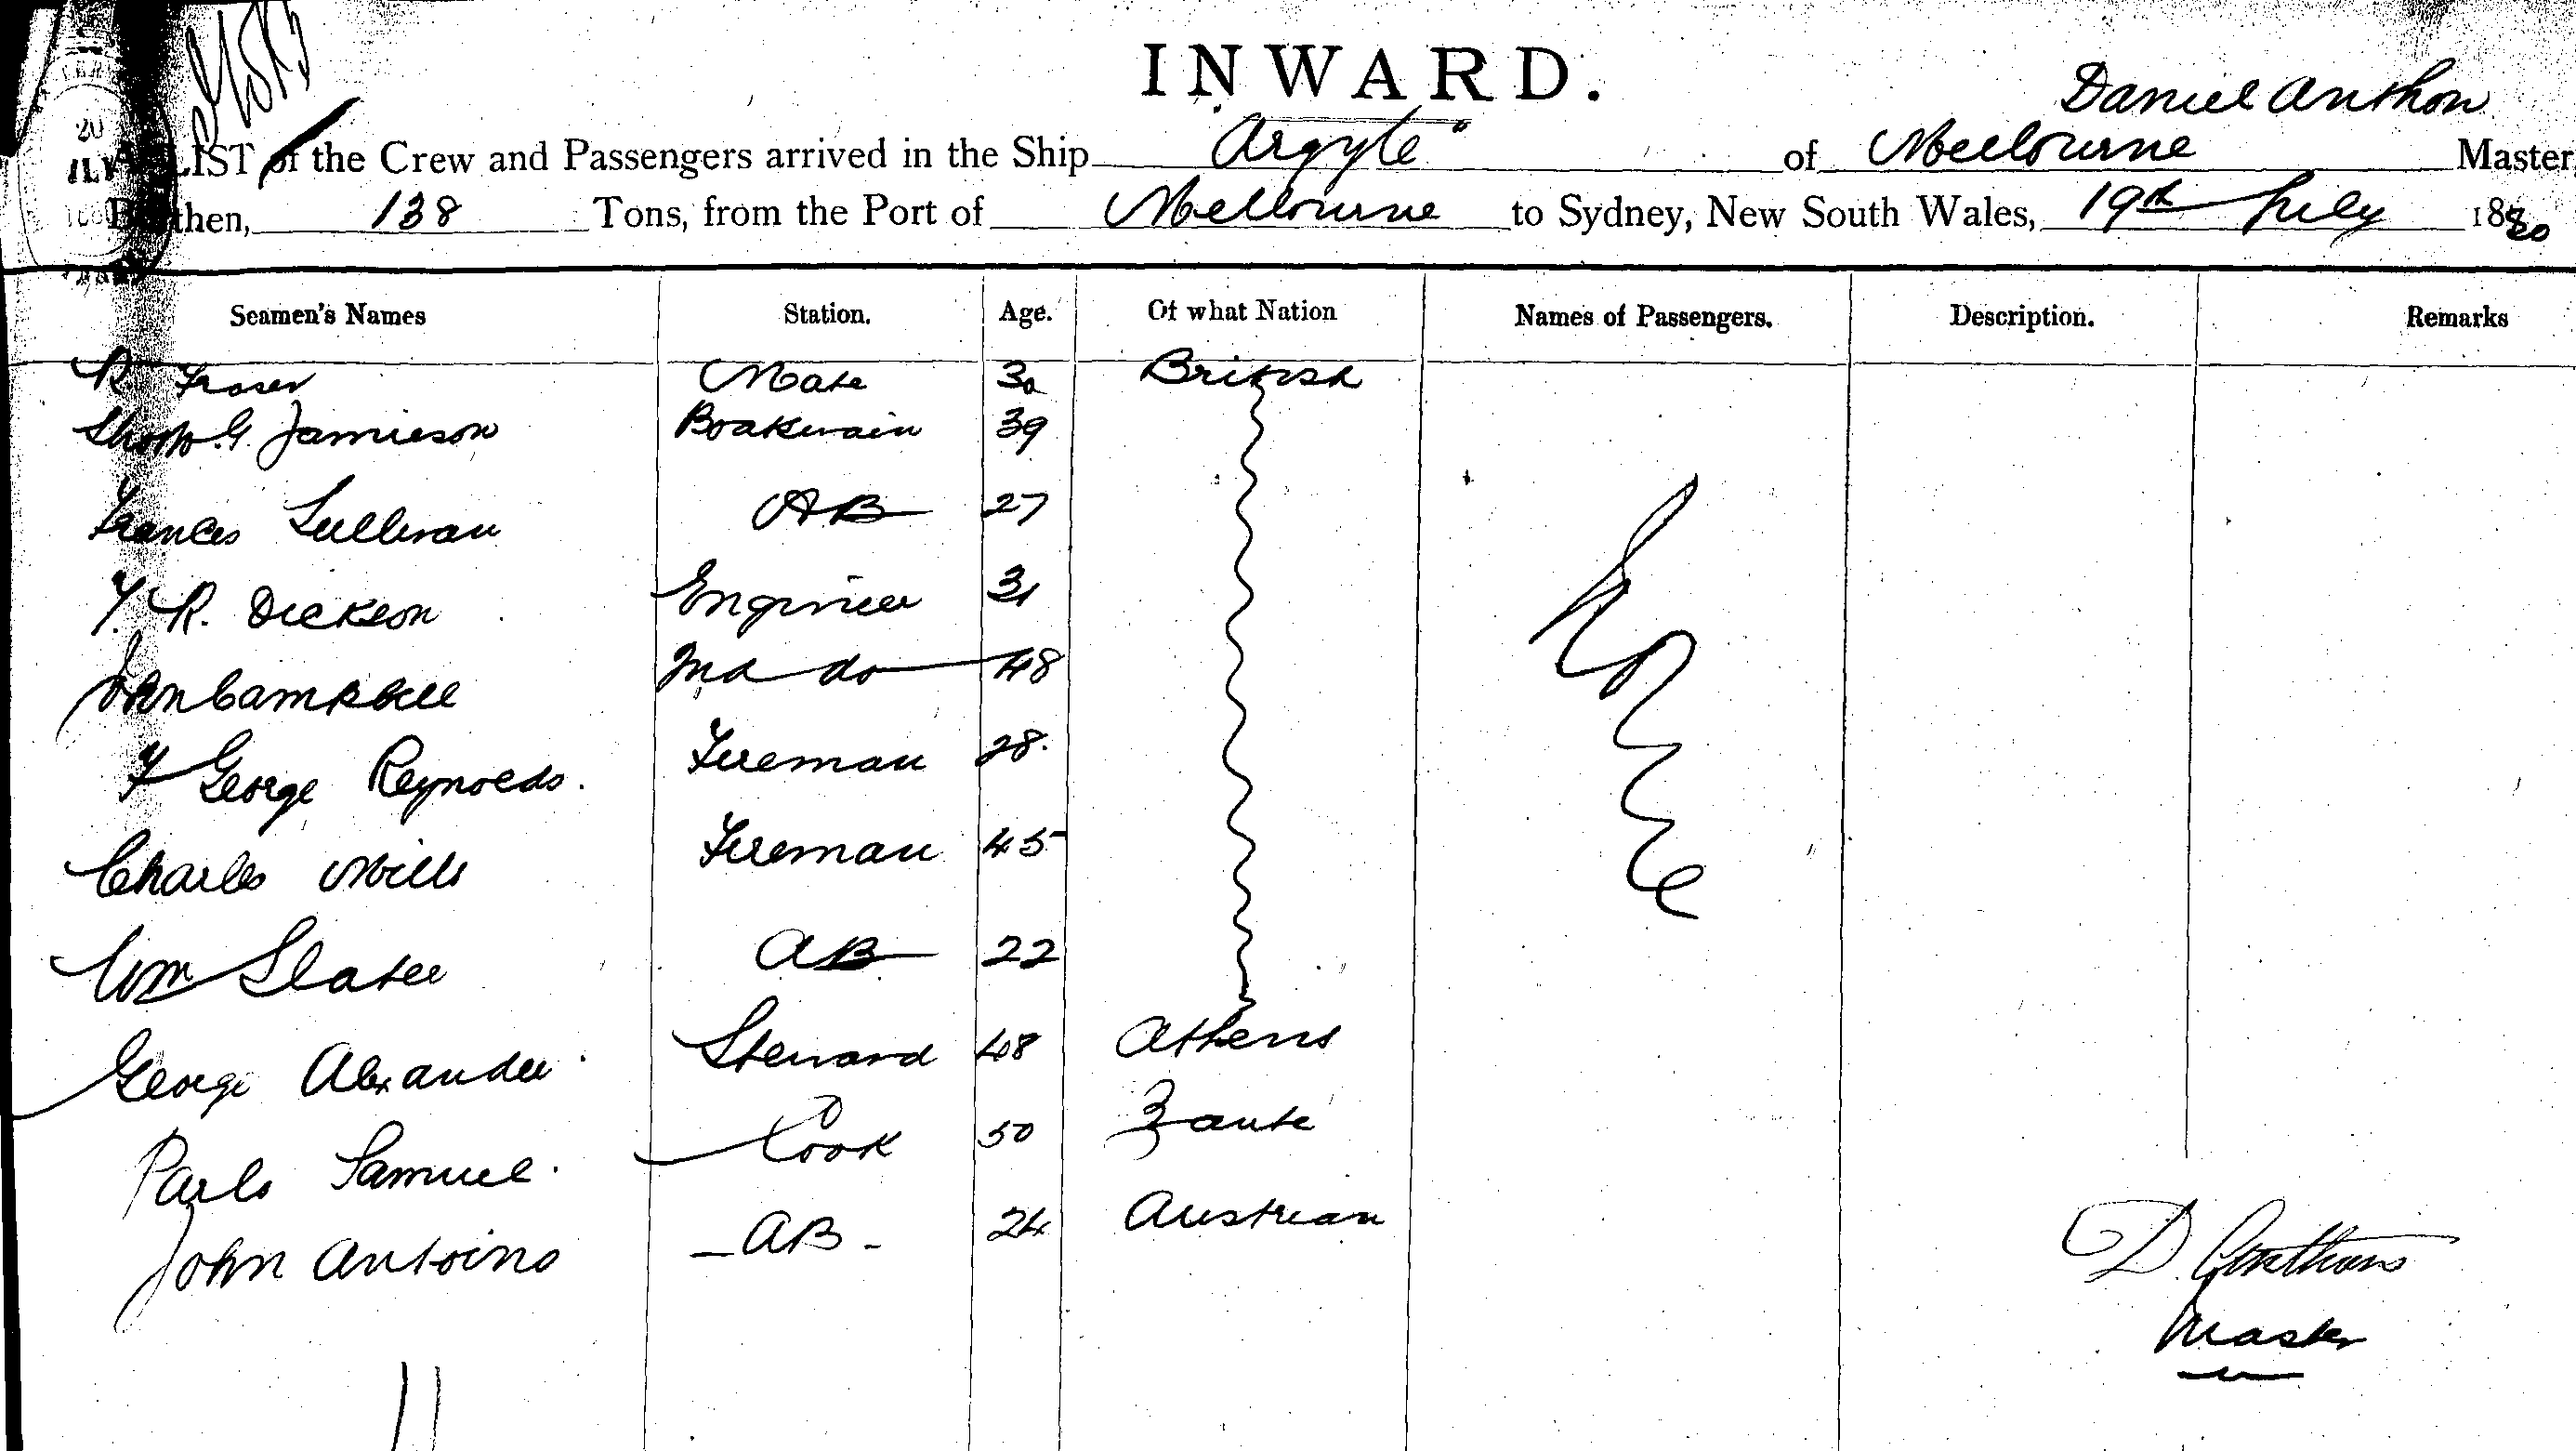 INWARD.
Daniel Anthon
LIST of the Crew and Passengers arrived in the Ship Argyle" of Melbourne Master
Burthen, 138 Tons, from the Port of Melbourne to Sydney, New South Wales, 19th July 1880
Seamen's Names Station. Age. Of what Nation Names of Passengers. Description. Remarks
R Fraser Mate 30 British
G. Jamieson Boatswain 39
Frances Sullivan AB 27
R. Dickson Engineer 31
John Campbell 2nd do 48
None
F George Reynolds. Fireman 28.
Charles Mills Fireman 45
Wm Slater AB 22
George Alexander Steward 48 Athens
Parlo Samuel. Cook 50 Zante
John Antoino - AB - 24 Austrian
D.
Master
11